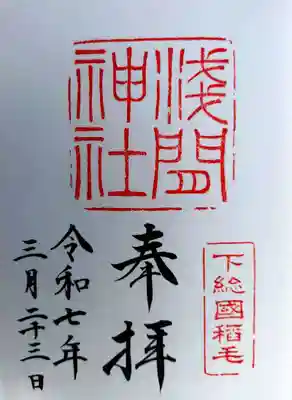 浅間
神社
下総國稲毛
奉拝
令和七年
三月二十三日